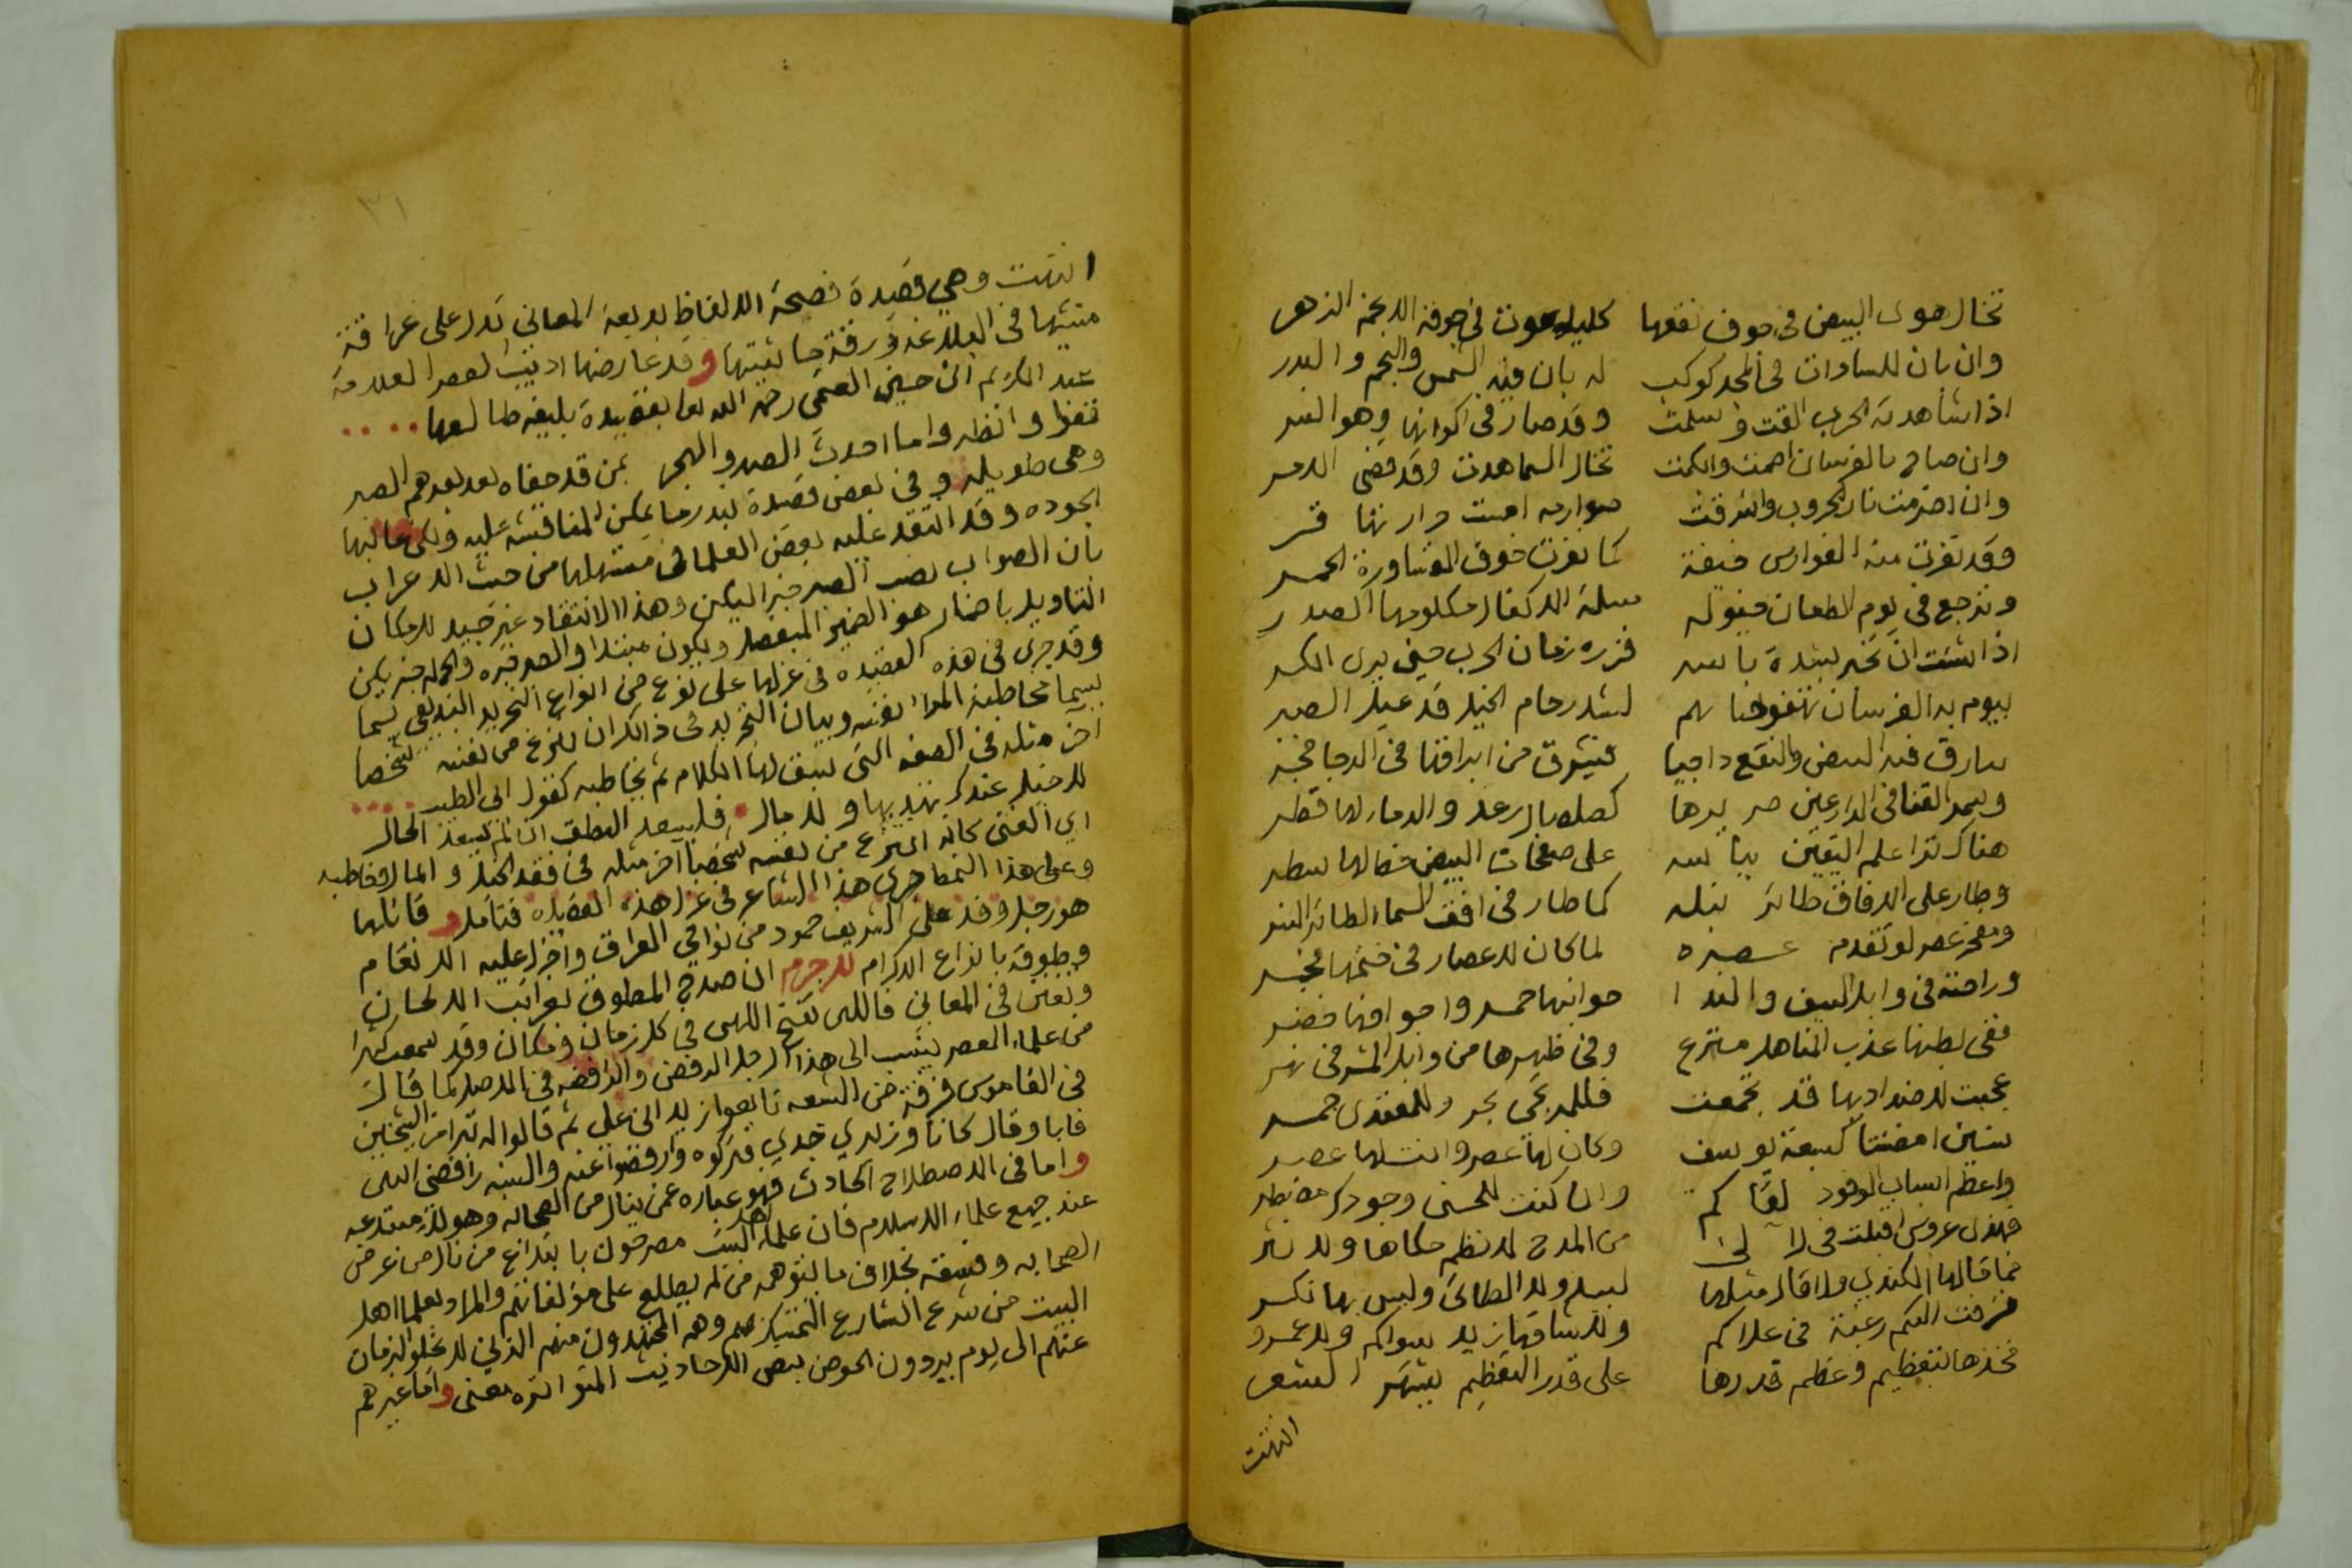 تخال هوى البيض في جوف نقعها كليل هوت في جوفه الانجم الزهر
وان بان للسادات في المجد كوكب له بان فيه الشمس والنجم والبدر
اذا شاهدته الحرب القت وسلمت وقد صار في اكوانها وهو
وان صاح بالفرسان اصمت والكمت تخال السما هدت وقد قضي الامر
وان اضرمت نار الحروب واشرقت صوارمه
وقد نفرت منه الفوارس خيفة كما نفرت خوف القساورة الحمر
وترجع في يوم الطعان خيوله سالمة الاكفال مكلومها الصدر
اذا شئت ان تخبر لشدة باسه فزره زمان الحرب حين يرى الكر
بيوم به الفرسان تهفو لشد زحام الخيل قد عيل الصبر
بيارق فيه البيض والنقع داجيا فيشرق من ابراقها في الدجا فجر
القنا في الدارعين صريرها كصلصال رعد والدماء لها قطر
هناك ترا علم اليقين بباسه على صفحات البيض خطا لها سطر
وطار على الافاق طائر نبله كما طار في افق السماء الطائر النسر
ومفخر عصر لو تقدم عصره لما كان للاعصار في ختمها فخر
وراحته في وابل السيف والندا جوانبها حمر واجوافها خضر
ففي بطنها عذب المناهل مترع وفي ظهرها من وابل المشرفي نهر
عجبت لاضداد بها قد تجمعت فللمرتجي بحر وللمعتدي جمر
سنين امضتنا كسبعة يوسف وكان لها عصر وانت لها عصر
واعظم اسباب الوفود لقاكم وان كنت للحسنى وجودكم
فهذي عروس اقبلت في لآلئ من المدح لا نظم حكاها ولا نثر
فما قالها الكندي ولا قال مثلها لبيد ولا الطائي وليس بها نكر
زفت اليكم رغبة في علاكم ولا ساقها زيد سواكم ولا عمرو
فخذها بتعظيم وعظم قدرها على قدر التعظيم يشتهر الشعر
انتهت
٣١
انتهت وهي قصيدة فصيحة الالفاظ بديعة المعاني تدل على عراقة
منشيها في البلاغة ورقة حاشيتها وقد عارضها اديب العصر العلامة
عبد الكريم ابن حسين العتمي رحمه الله تعا بقصيدة بليغه طالعها ....
قفوا وانظروا ما احدث الصد والهجر بمن قد جفاه بعد بعدهم الصبر
وهي طويله وفي بعض قصيدة بندر ما يمكن المناقشه عليه ولكن غالبها
الجوده وقد انتقد عليه بعض العلما في مستهلها من حيث الاعراب
بان الصواب نصب الصبر خبرا ليكن وهذا الانتقاد غير جيد لامكان
التاويل باضمار هو الضمير المنفصل ويكون مبتدا والصبر خبره والجمله خبر يكن
وقد جرى في هذه القصيده في غزلها على نوع من انواع التجريد البديعي يسما
بسما مخاطبة المرا نفسه وبيان التجريد في ذالك ان ينزع من نفسه شخصا
آخر مثله في الصفه التي سبق لها الكلام ثم يخاطبه كقول ابي الطيب ....
لا خيل عندك تهديها ولا مال فليسعد النطق ان لم يسعد الحال
اي الغنى كانه انتزع من نفسه شخصا آخر مثله في فقد الخيل والمال وخاطبه
وعلى هذا النمط جرى هذا الشاعر في غزل هذه القصيده فتامل وقائلها
هو رجل وفد على الشريف حمود من نواحي العراق واجزل عليه الانعام
وطوقه بانواع الاكرام لاجرم ان صدح المطوق بغرائب الالحان
وتفنن في المعاني فاللهى تفتح اللهى في كل زمان ومكان وقد سمعت كثيرا
من علماء العصر ينسب الى هذا الرجل الرفض والرافضه في الاصل كما قال
في القاموس فرقة من الشيعه تابعوا زيد ابن علي ثم قالوا له تبرا من الشيخين
فابا وقال كانا وزيري جدي فتركوه وارفضوا عنه والنسبه رافضي انتهى
واما في الاصطلاح الحادث فهو عباره عمن ينال من الصحابه وهولاء مبتدعه
عند جميع علماء الاسلام فان علماء اهل البيت مصرحون بابتداع من نال من عرض
الصحابه وفسقه بخلاف ما يتوهمه من لم يطلع على مؤلفاتهم والمراد بعلما اهل
البيت من شرع الشارع التمسك بهم وهم المجتهدون منهم الذين لا تخلوا الزمان
عنهم الى يوم يردون الحوض بنص الاحاديث المتواتره معنى واما غيرهم